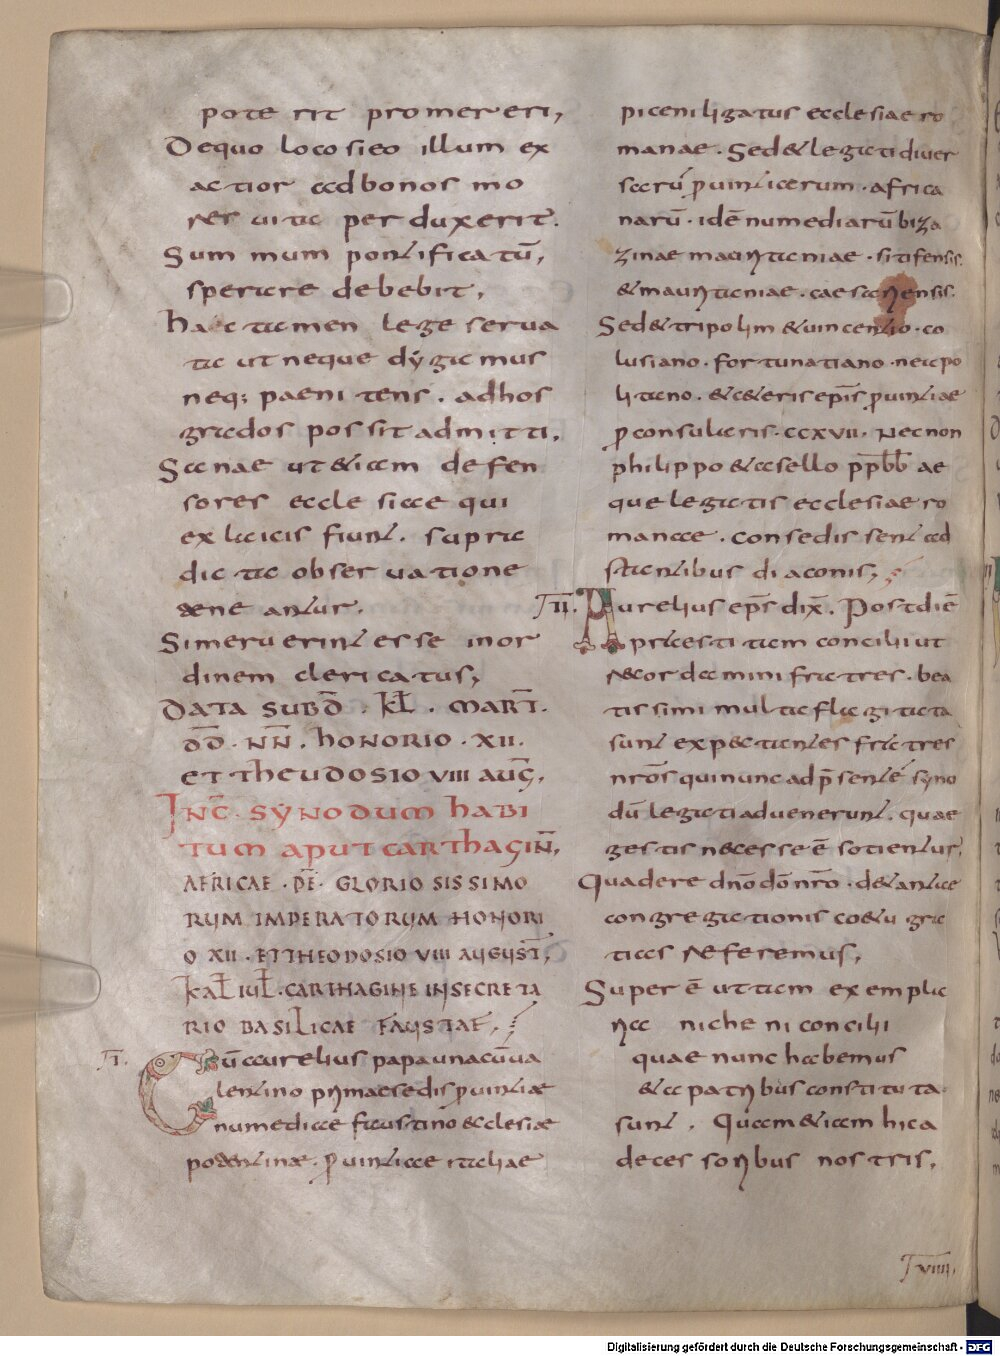 pote rit promereri,
De quo loco si eo illum ex
actior ad bonos mo
res uitae perduxerit.
Summum pontificatū,
sperare debebit,
haec tamen lege serua
ta ut neque dẏgamus
neq; paenitens . ad hos
gradus possit admitti,
Sane ut etiam defen
sores ecclesiae qui
ex laicis fiunt . supra
dicta obseruatione
teneantur.
Si meruerint esse in or
dinem clericatus,
DATA SUBD̄ . KL̄ . MART̄.
D̄D̄ . N̄N̄ . HONORIO . XII.
ET THEUDOSIO VIII AUḠ,
INC̄ . SẎNODUM HABI
TUM APUT CARTHAGIN̄,
AFRICAE . DĒ . GLORIOSISSIMO
RUM IMPERATORUM HONORI
O XII . ET THEODOSIO VIII AUGUST̄,
KAL̄ IUL̄ . CARTHAGINE IN SECRETA
RIO BASILICAE FAUSTAE,
I.
Cū aurelius papa una cū ua
lentino primae sedis puintiae
numediae faustino ecclesiae
potentinae . puintiae italiae
piceni ligatus ecclesiae ro
manae . Sed & legati diuer
sarū puintiarum . africa
narū . idē numediarū biza
zinae mauritaniae . sitifensis.
& mauritaniae . caesariensis.
Sed & tripolim & uincentio . co
lusiano . fortunatiano . neapo
litano . & ceteris ep̄is puintiae
pconsularis . CCXVII. Necnon
philippo & asello pp̄bb̄ ae
que legatis ecclesiae ro
manae . consedissent ad
stantibus diaconis,
II. Aurelius ep̄s dix̄ . Post diē
praestitam concilii ut
recordamini fratres . bea
tissimi multa flagitata
sunt expectantes fratres
nrōs qui nunc ad p̄sentē syno
dū legati aduenerunt . quae
gestis necesse ē sotientur,
Qua de re dn̄o dō nr̄o . de tantae
congregationis coetu gra
tias referemus,
Super ē ut tam exempla
ria nicheni concilii
quae nunc habemus
& a patribus constituta
sunt . Quam etiam hic a
decessoribus nostris,
I VIIII.
Digitalisierung gefördert durch die Deutsche Forschungsgemeinschaft - DFG